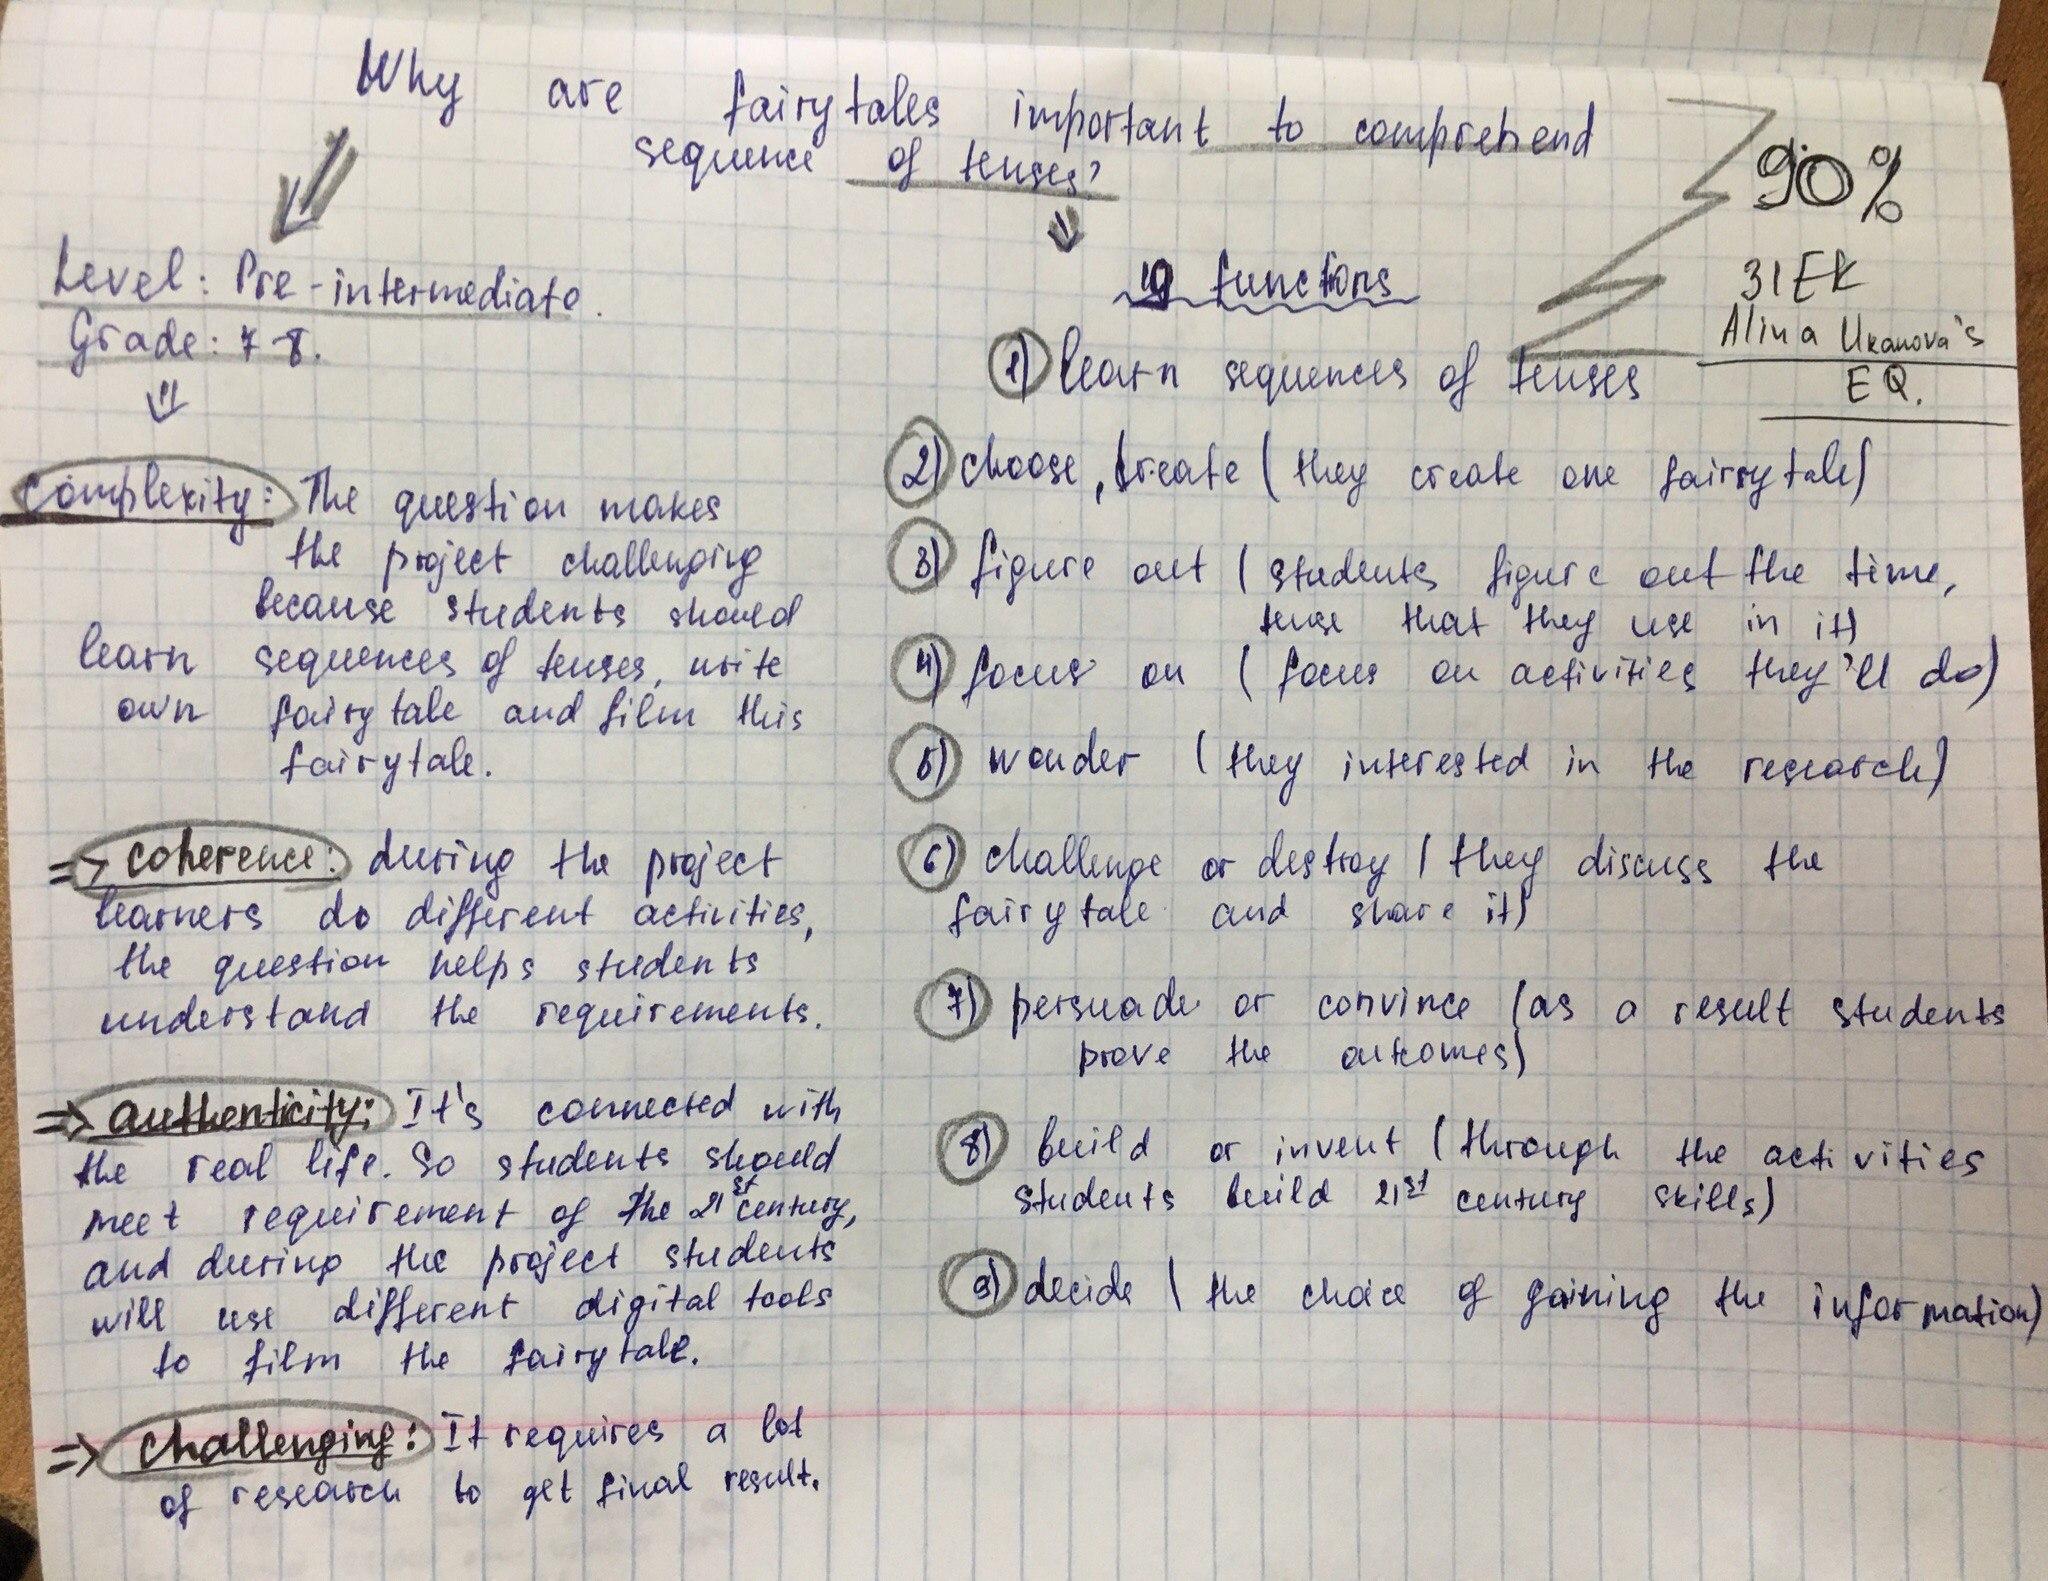 Why are fairytales important to comprehend
sequence of tenses?
90%
31EK
Alina Ukanova's
EQ.
Level: Pre-intermediate.
Grade: 7-8.
complexity: The question makes
the project challenging
because students should
learn sequences of tenses, write
own fairytale and film this
fairytale.
=> coherence: during the project
learners do different activities,
the question helps students
understand the requirements.
=> authenticity: It's connected with
the real life. So students should
meet requirement of the 21st century,
and during the project students
will use different digital tools
to film the fairytale.
=> challenging: It requires a lot
of research to get final result.
functions
1) learn sequences of tenses
2) choose, create (they create one fairytale)
3) figure out (students figure out the time,
tense that they use in it)
4) focus on (focus on activities they'll do)
5) wonder (they interested in the research)
6) challenge or destroy (they discuss the
fairytale and share it)
7) persuade or convince (as a result students
prove the outcomes)
8) build or invent (through the activities
students build 21st century skills)
9) decide (the choice of gaining the information)